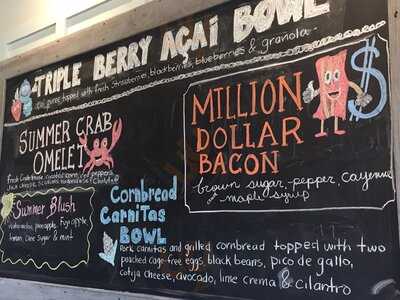 TRIPLE BERRY AÇAI BOWL
topped with fresh strawberries, blackberries, blueberries & granola
SUMMER CRAB
OMELET
MILLION
DOLLAR
BACON
$
brown sugar, pepper, cayenne
& maple syrup
Summer Blush
Watermelon, pineapple, Fuji apple,
lemon, cane sugar & mint
Cornbread
Carnitas
BOWL
Pork carnitas and grilled cornbread topped with two
poached cage-free eggs, black beans, pico de gallo,
cotija cheese, avocado, lime crema & cilantro